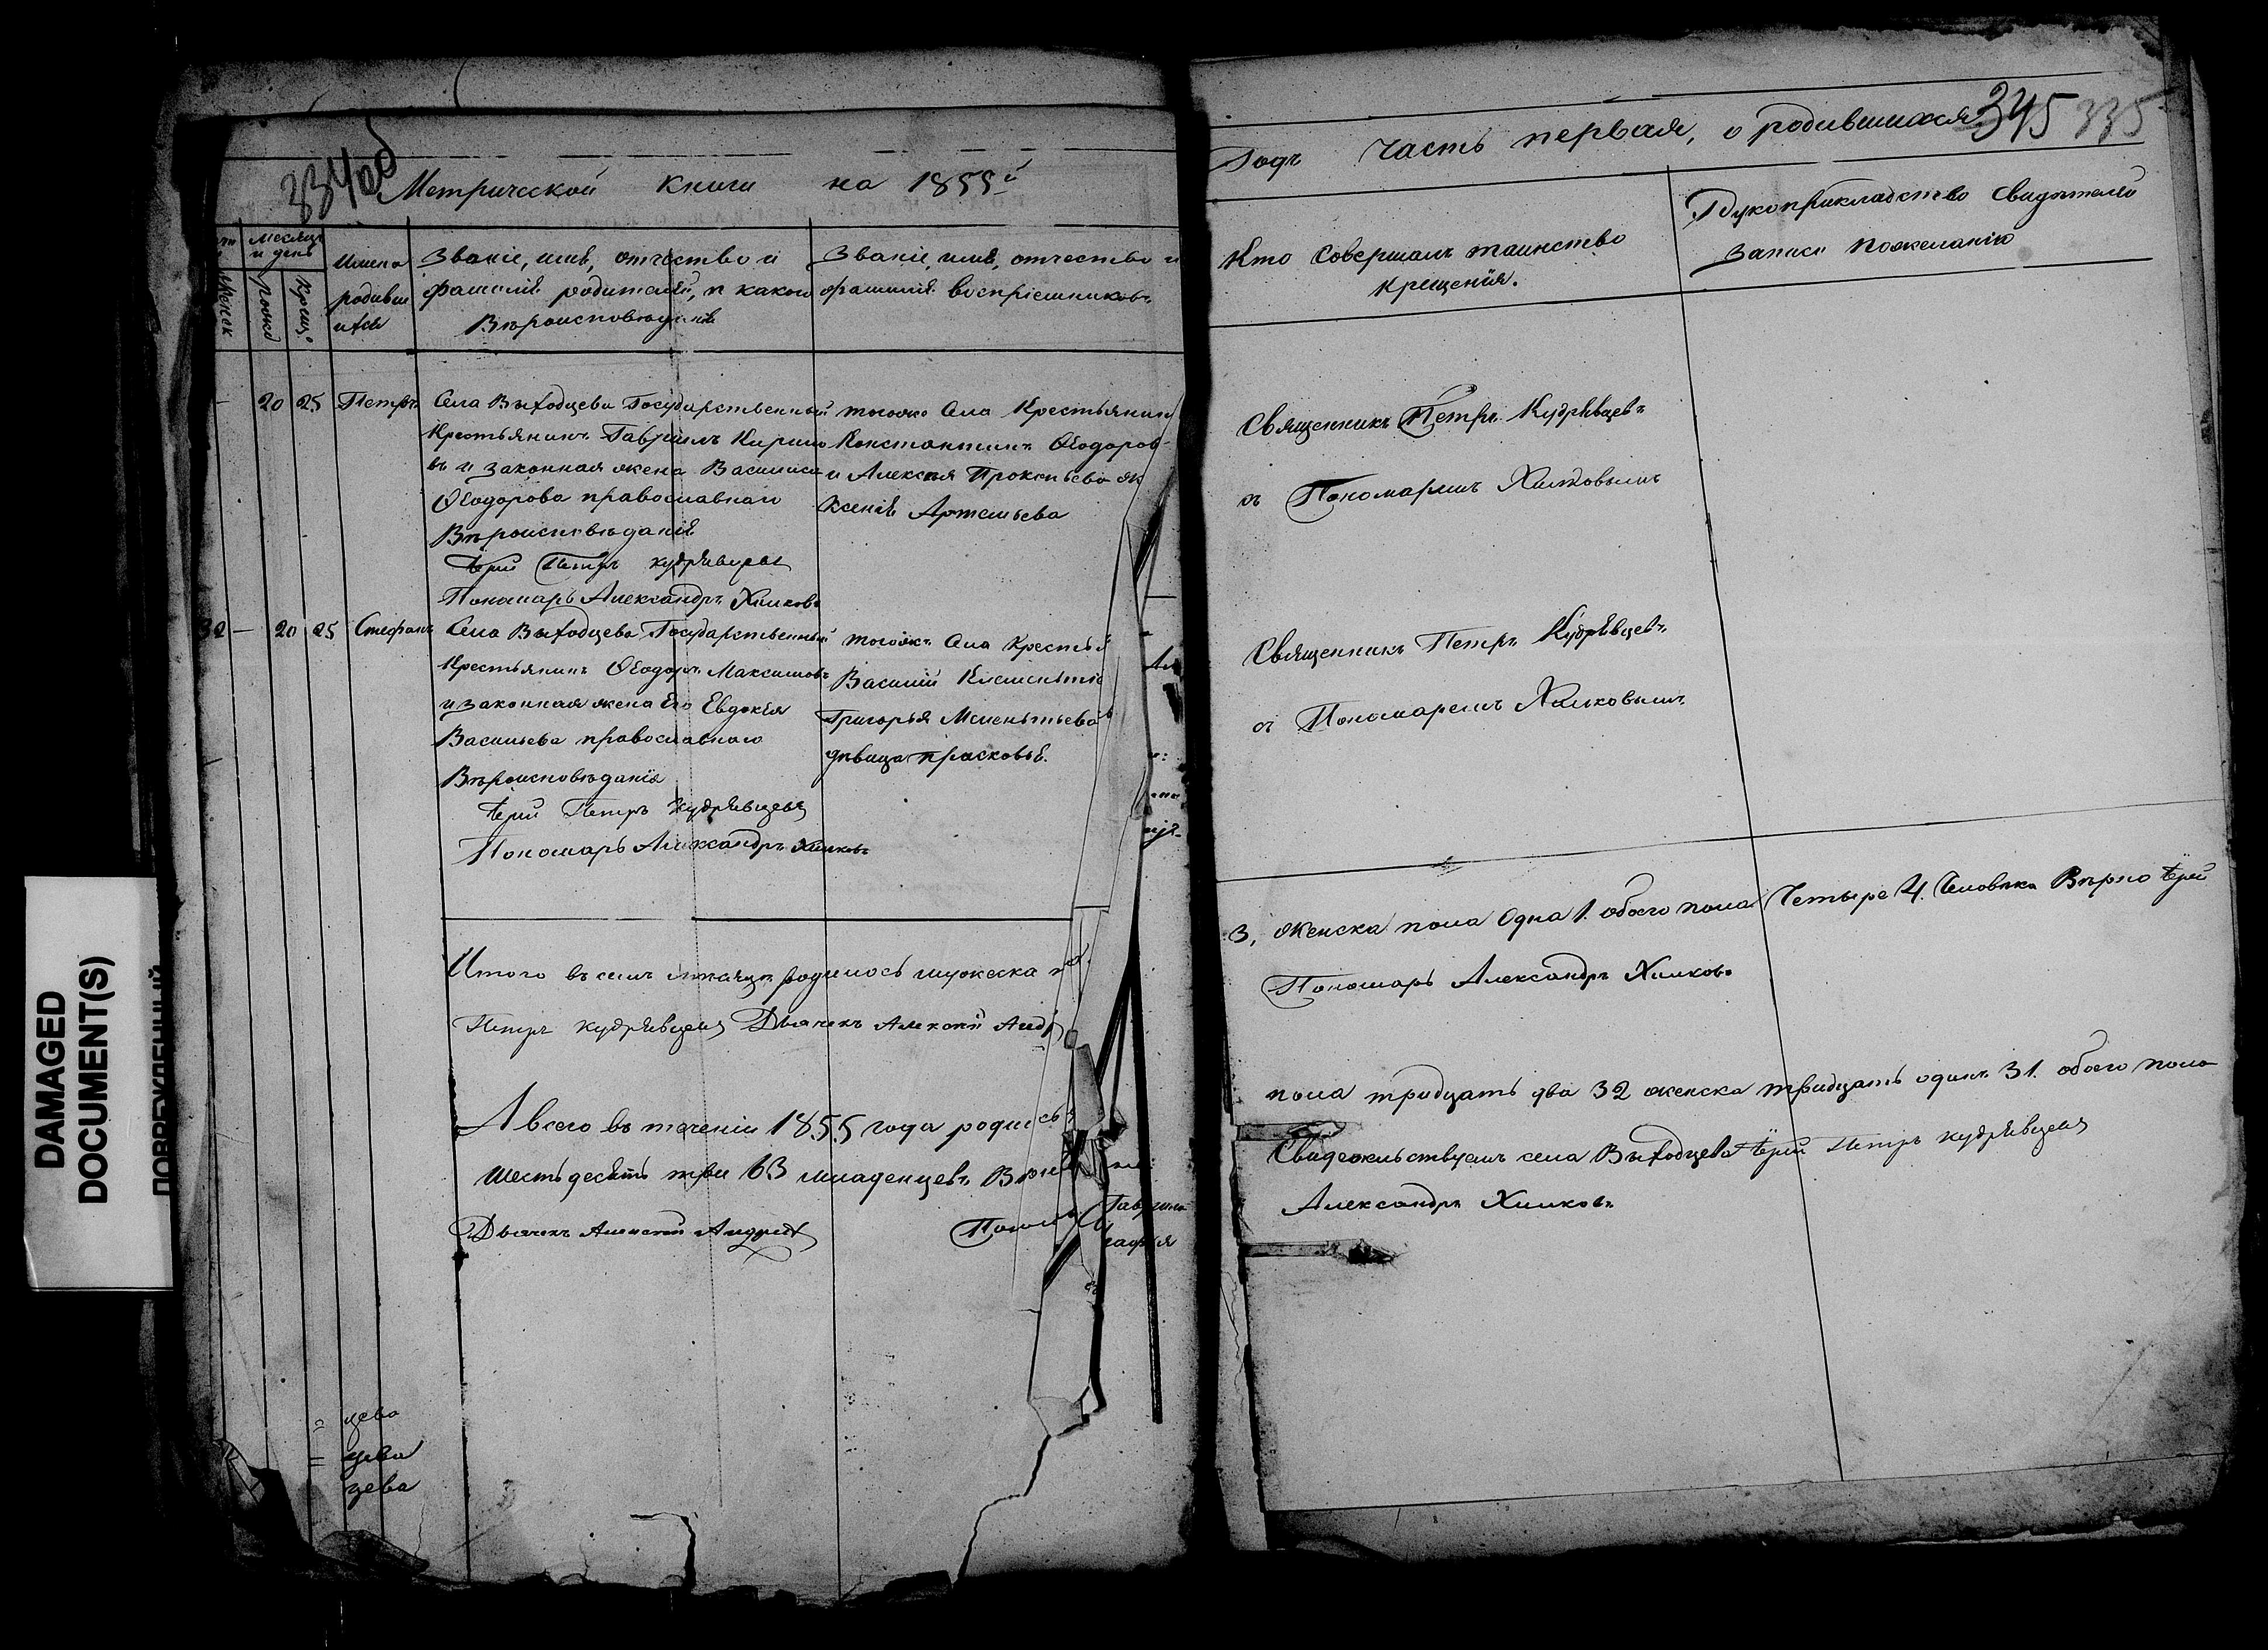 334об
Метрической книги на 1855й
Месяцъ и день
Имена родивш ихся
Званіе, имя, отчество и фамилія родителей, и какого Вѣроисповѣданія
Званіе, имя, отчество и фамилія воспріемниковъ
20 25 Петръ
Села Выходцева Государственный
Крестьянинъ Гавріилъ Кирило
въ и законная жена Василиса
Ѳеодорова православнаго
Вѣроисповѣданія
Іерей Петръ Кудрявцевъ
Пономарь Александръ Химковъ
тогоже Села Крестьянин
Константинъ Ѳеодоров-
и Алексѣя Прокопьева ж
Ксенія Артемьева
32 — 20 25 Стефанъ
Села Выходцева Государственный
Крестьянинъ Ѳеодоръ Максимовъ
и законная жена Его Евдокія
Васильева православнаго
Вѣроисповѣданія
Іерей Петръ Кудрявцевъ
Пономарь Александръ Химковъ
тогоже Села Крестья
Василій
Григорья
дѣвица Прасковья.
Итого въ семъ мѣсяцѣ родилось мужеска по
Петръ Кудрявцевъ Дьячекъ Алексѣй Андр
А всего въ теченіи 1855 года родилось
шестьдесятъ три 63 младенцевъ
Дьячекъ Алексѣй
цева
цева
цева
DAMAGED
DOCUMENT(S)
ПОВРЕЖДЕННЫЙ
345 335
Годъ Часть первая, о родившихся
Кто Совершалъ таинство
крещенія.
Рукоприкладство Свидѣтелей
записи по желанію
Священникъ Петръ Кудрявцевъ
съ Пономаремъ Химковымъ
Священникъ Петръ Кудрявцевъ
съ Пономаремъ Химковымъ
3, женска пола Одна 1. обоего пола Четыре 4. Человѣка Вѣрно Іерей
Пономарь Александръ Химковъ
пола тридцать два 32 женска тридцать одинъ 31. обоего пола
Свидетельствуемъ села Выходцева Іерей Петръ Кудрявцевъ
Александръ Химковъ